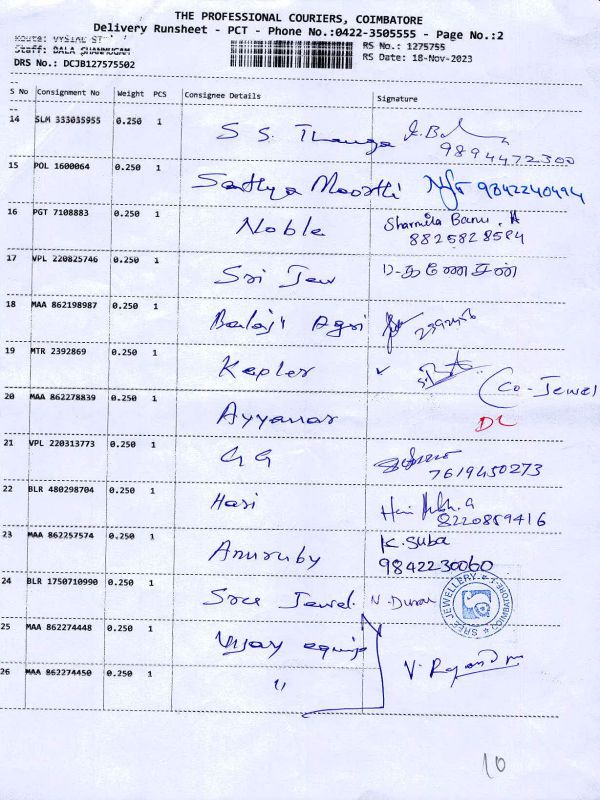 THE PROFESSIONAL COURIERS, COIMBATORE
Delivery Runsheet - PCT - Phone No.:0422-3505555 - Page No.:2
Route: VYSIAL ST
RS No.: 1275755
Staff: BALA SHANMUGAM
RS Date: 18-Nov-2023
DRS No.: DCJB127575502
S No Consignment No Weight PCS Consignee Details Signature
14 SLM 333035955 0.250 1 S S. Thanga
9894472300
15 POL 1600064 0.250 1 Sathya Moorthi 9842240494
16 PGT 7108883 0.250 1 Noble Sharmila Banu. A
8825828584
17 VPL 220825746 0.250 1 Sri Jew D-கணேசன்
18 MAA 862198987 0.250 1 Balaji Agri
19 MTR 2392869 0.250 1 Kepler ✓
Co-Jewel
20 MAA 862278839 0.250 1 Ayyanar DL
21 VPL 220313773 0.250 1 G G
7619450273
22 BLR 480298704 0.250 1 Hari
8220859416
23 MAA 862257574 0.250 1 Anuruby K. Suba
9842230060
24 BLR 1750710990 0.250 1 Sree Jewel. N. Durai
SREE JEWELLERY COIMBATORE-1
25 MAA 862274448 0.250 1 Vijay equip
V. Rajendran
26 MAA 862274450 0.250 1 "
10